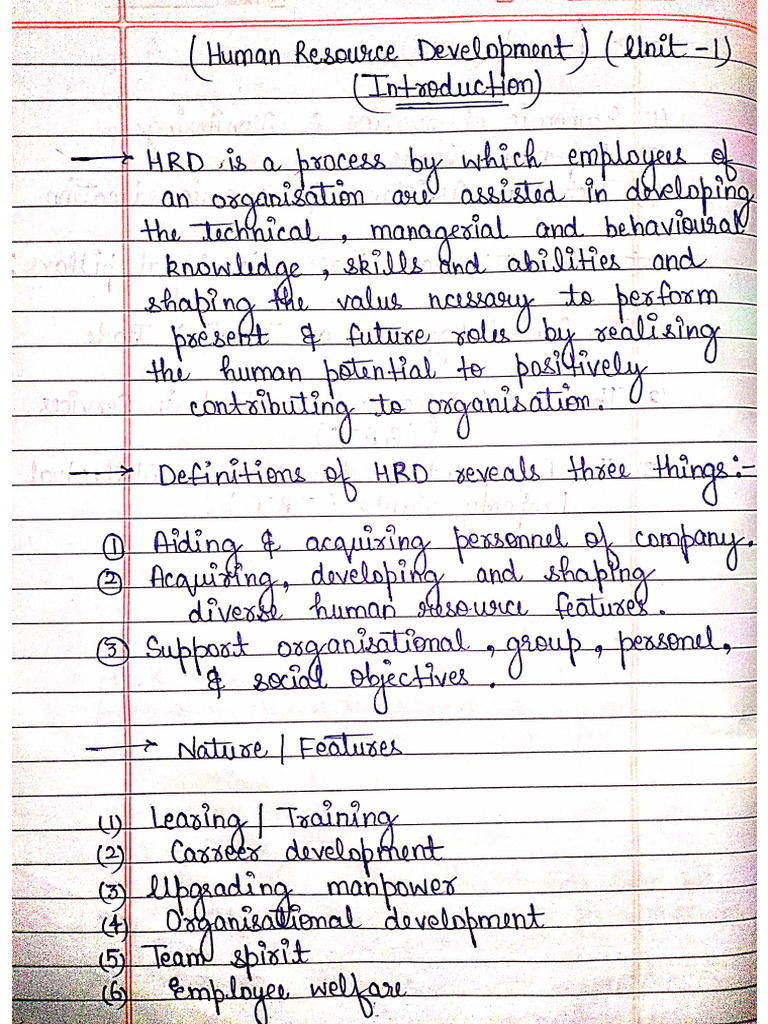 (Human Resource Development) (Unit-1)
(Introduction)
→ HRD is a process by which employees of
an organisation are assisted in developing
the technical, managerial and behavioural
knowledge, skills and abilities and
shaping the value ncessary to perform
present & future roles by realising
the human potential to positively
contributing to organisation.
→ Definitions of HRD reveals three things:-
① Aiding & acquiring personnel of company.
② Acquiring, developing and shaping
diverse human resource features.
③ Support organisational, group, personel,
& social objectives.
→ Nature / Features
(1) Learing / Training
(2) Carreer development
(3) Upgrading manpower
(4) Organisational development
(5) Team spirit
(6) Employee welfare